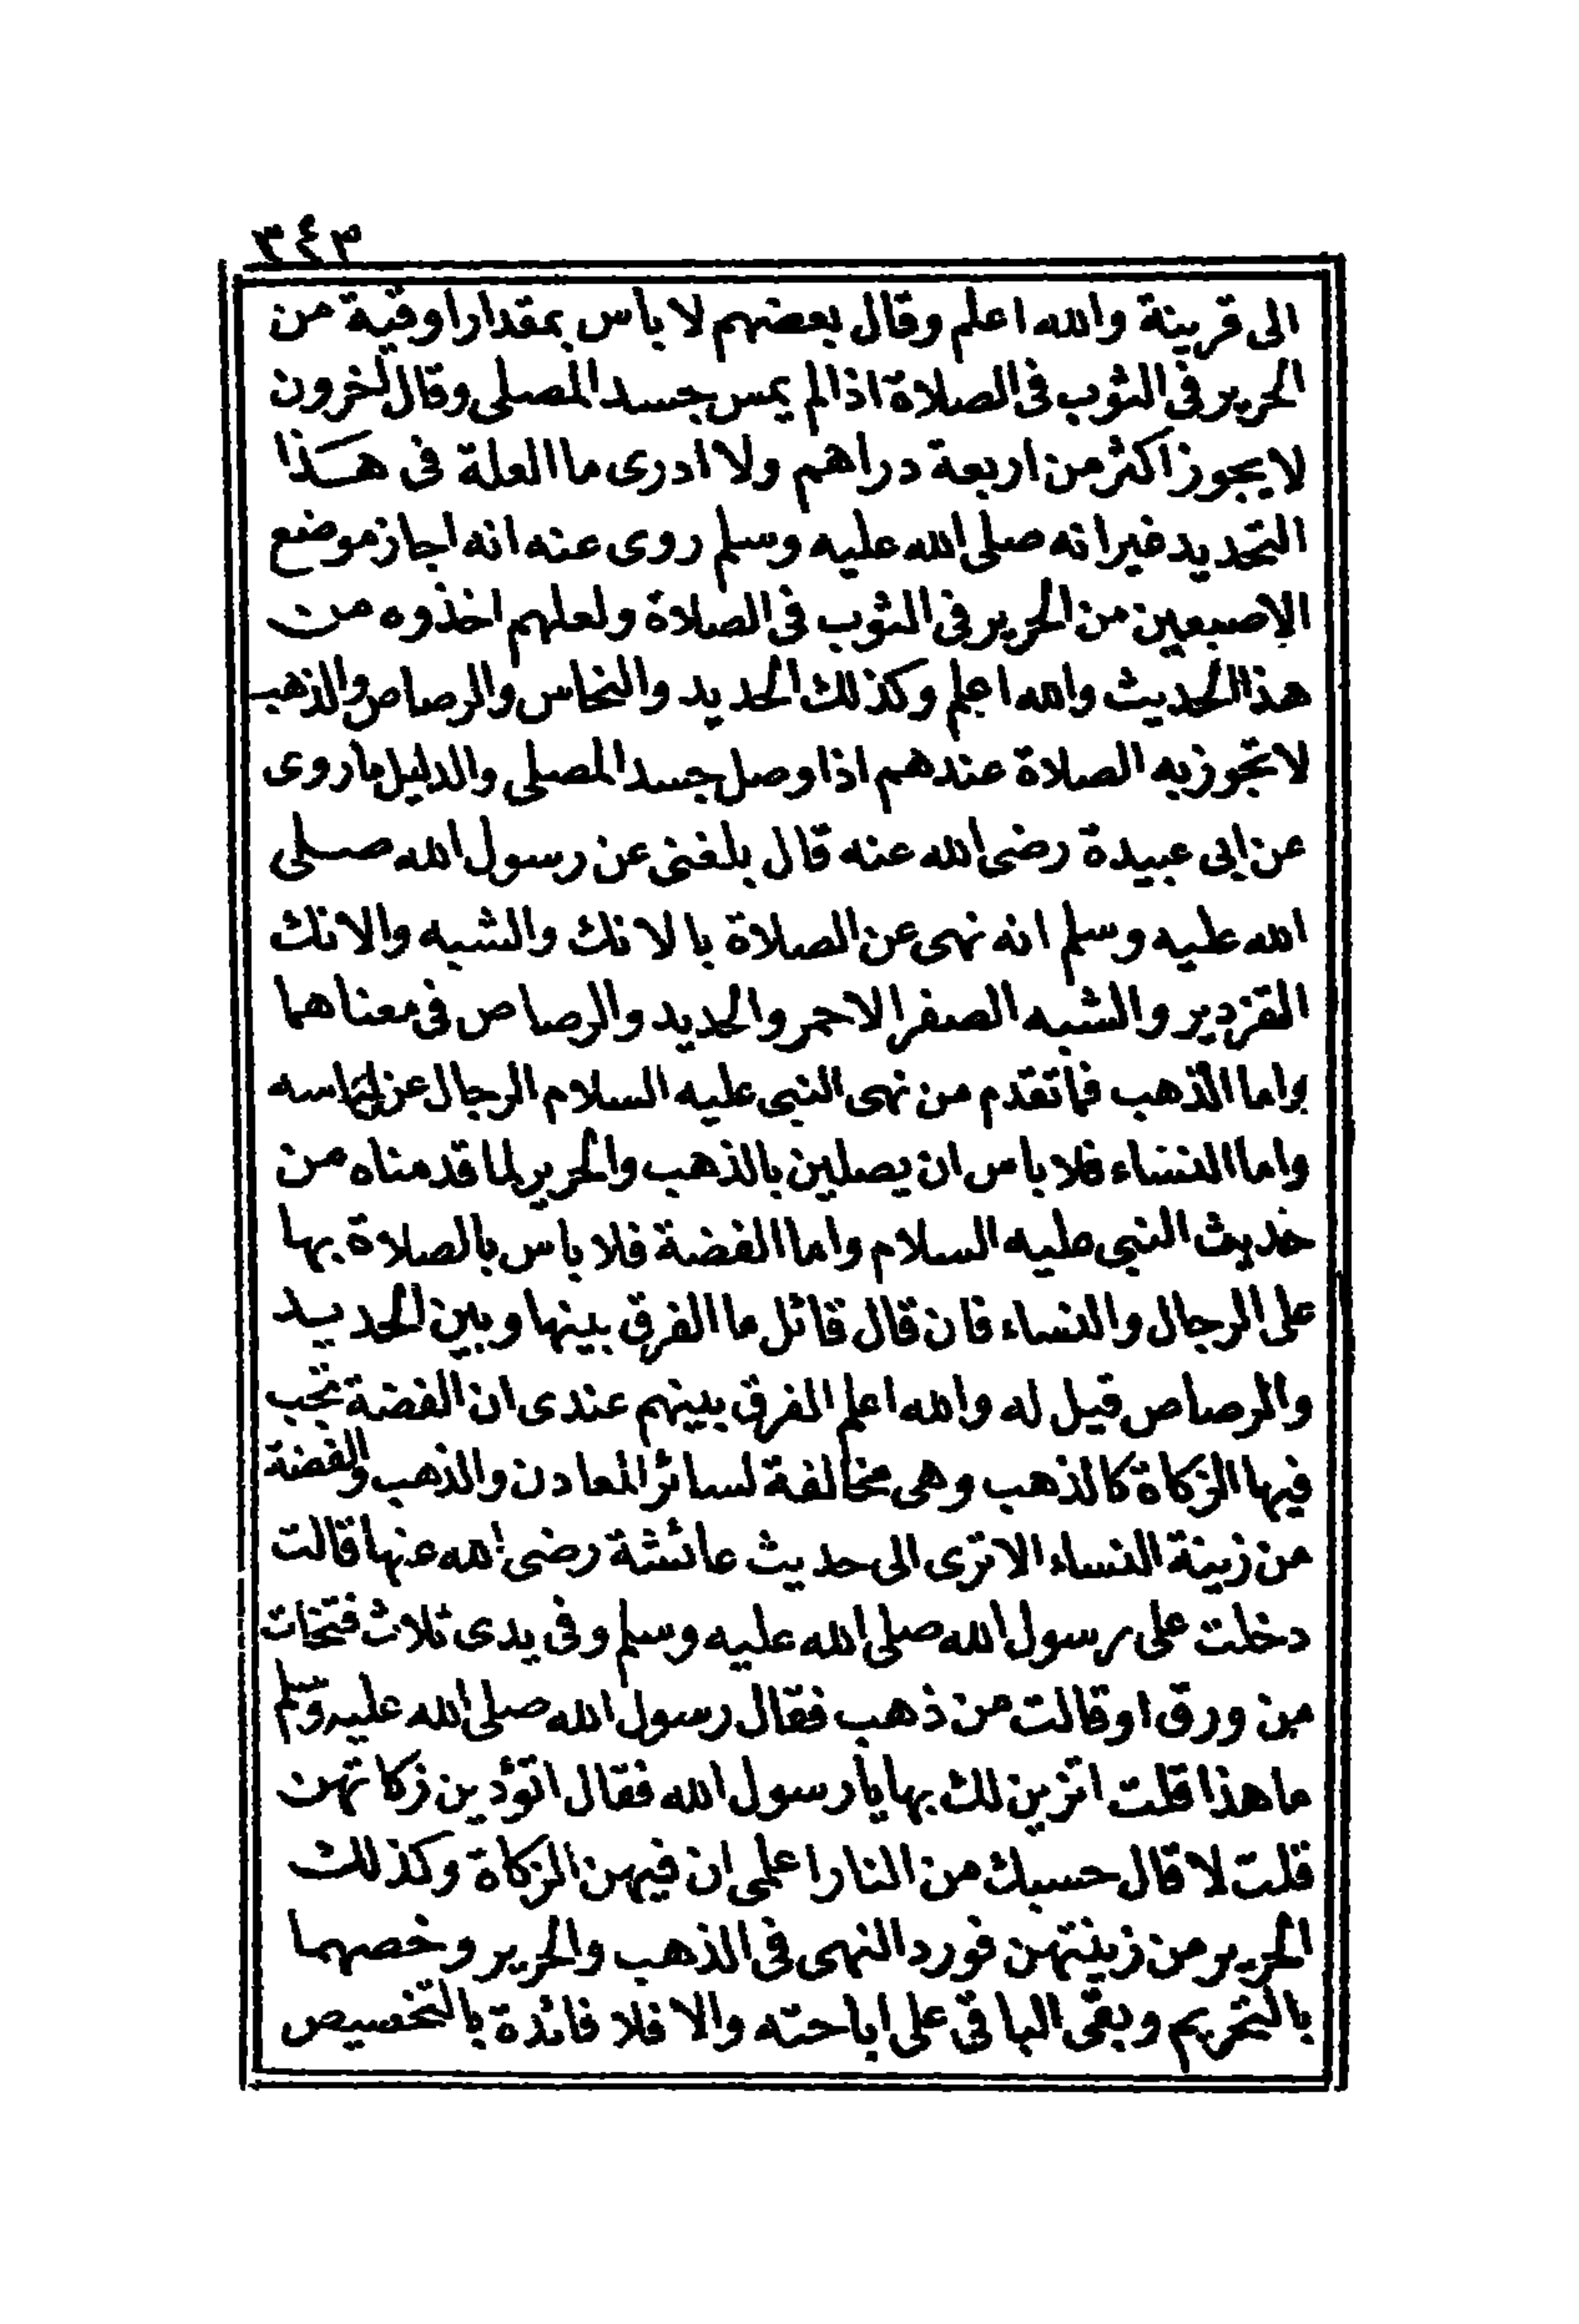 ٣٤٣
الى قرينة والله اعلم وقال بعضهم لا بأس بمقدار اوقية من
الحرير فى الثوب فى الصلاة اذا لم يمس جسد المصلى وقال آخرون
لا يجوز اكثر من اربعة دراهم ولا ادرى ما العلة فى هذا
التحديد غير انه صلى الله عليه وسلم روى عنه انه اجاز موضع
الاصبعين من الحرير فى الثوب فى الصلاة ولعلهم اخذوه من
هذا الحديث والله اعلم وكذلك الحديد والنحاس والرصاص والذهب
لا تجوز به الصلاة عندهم اذا وصل جسد المصلى والدليل ما روى
عن ابى عبيدة رضى الله عنه قال بلغنى عن رسول الله صلى
الله عليه وسلم انه نهى عن الصلاة بالانك والشبه والانك
القزدير والشبه الصفر الاحمر والحديد والرصاص فى معناهما
واما الذهب فما تقدم من نهى النبى عليه السلام الرجال عن لباسه
واما النساء فلا باس ان يصلين بالذهب والحرير لما قدمناه من
حديث النبى عليه السلام واما الفضة فلا باس بالصلاة بها
على الرجال والنساء فان قال قائل ما الفرق بينها وبين الحديد
والرصاص قيل له والله اعلم الفرق بينهم عندى ان الفضة تجب
فيها الزكاة كالذهب وهى مخالفة لسائر المعادن والذهب والفضة
من زينة النساء الا ترى الى حديث عائشة رضى الله عنها قالت
دخلت على رسول الله صلى الله عليه وسلم وفى يدى ثلاث فتخات
من ورق او قالت من ذهب فقال رسول الله صلى الله عليه وسلم
ما هذا قلت اتزين لك بها يا رسول الله فقال اتؤدين زكاتهن
قلت لا قال حسبك من النار اعلمى ان فيهن الزكاة وكذلك
الحرير من زينتهن فورد النهى فى الذهب والحرير وخصهما
بالتحريم وبقى الباقى على اباحته والا فلا فائدة بالتخسيص